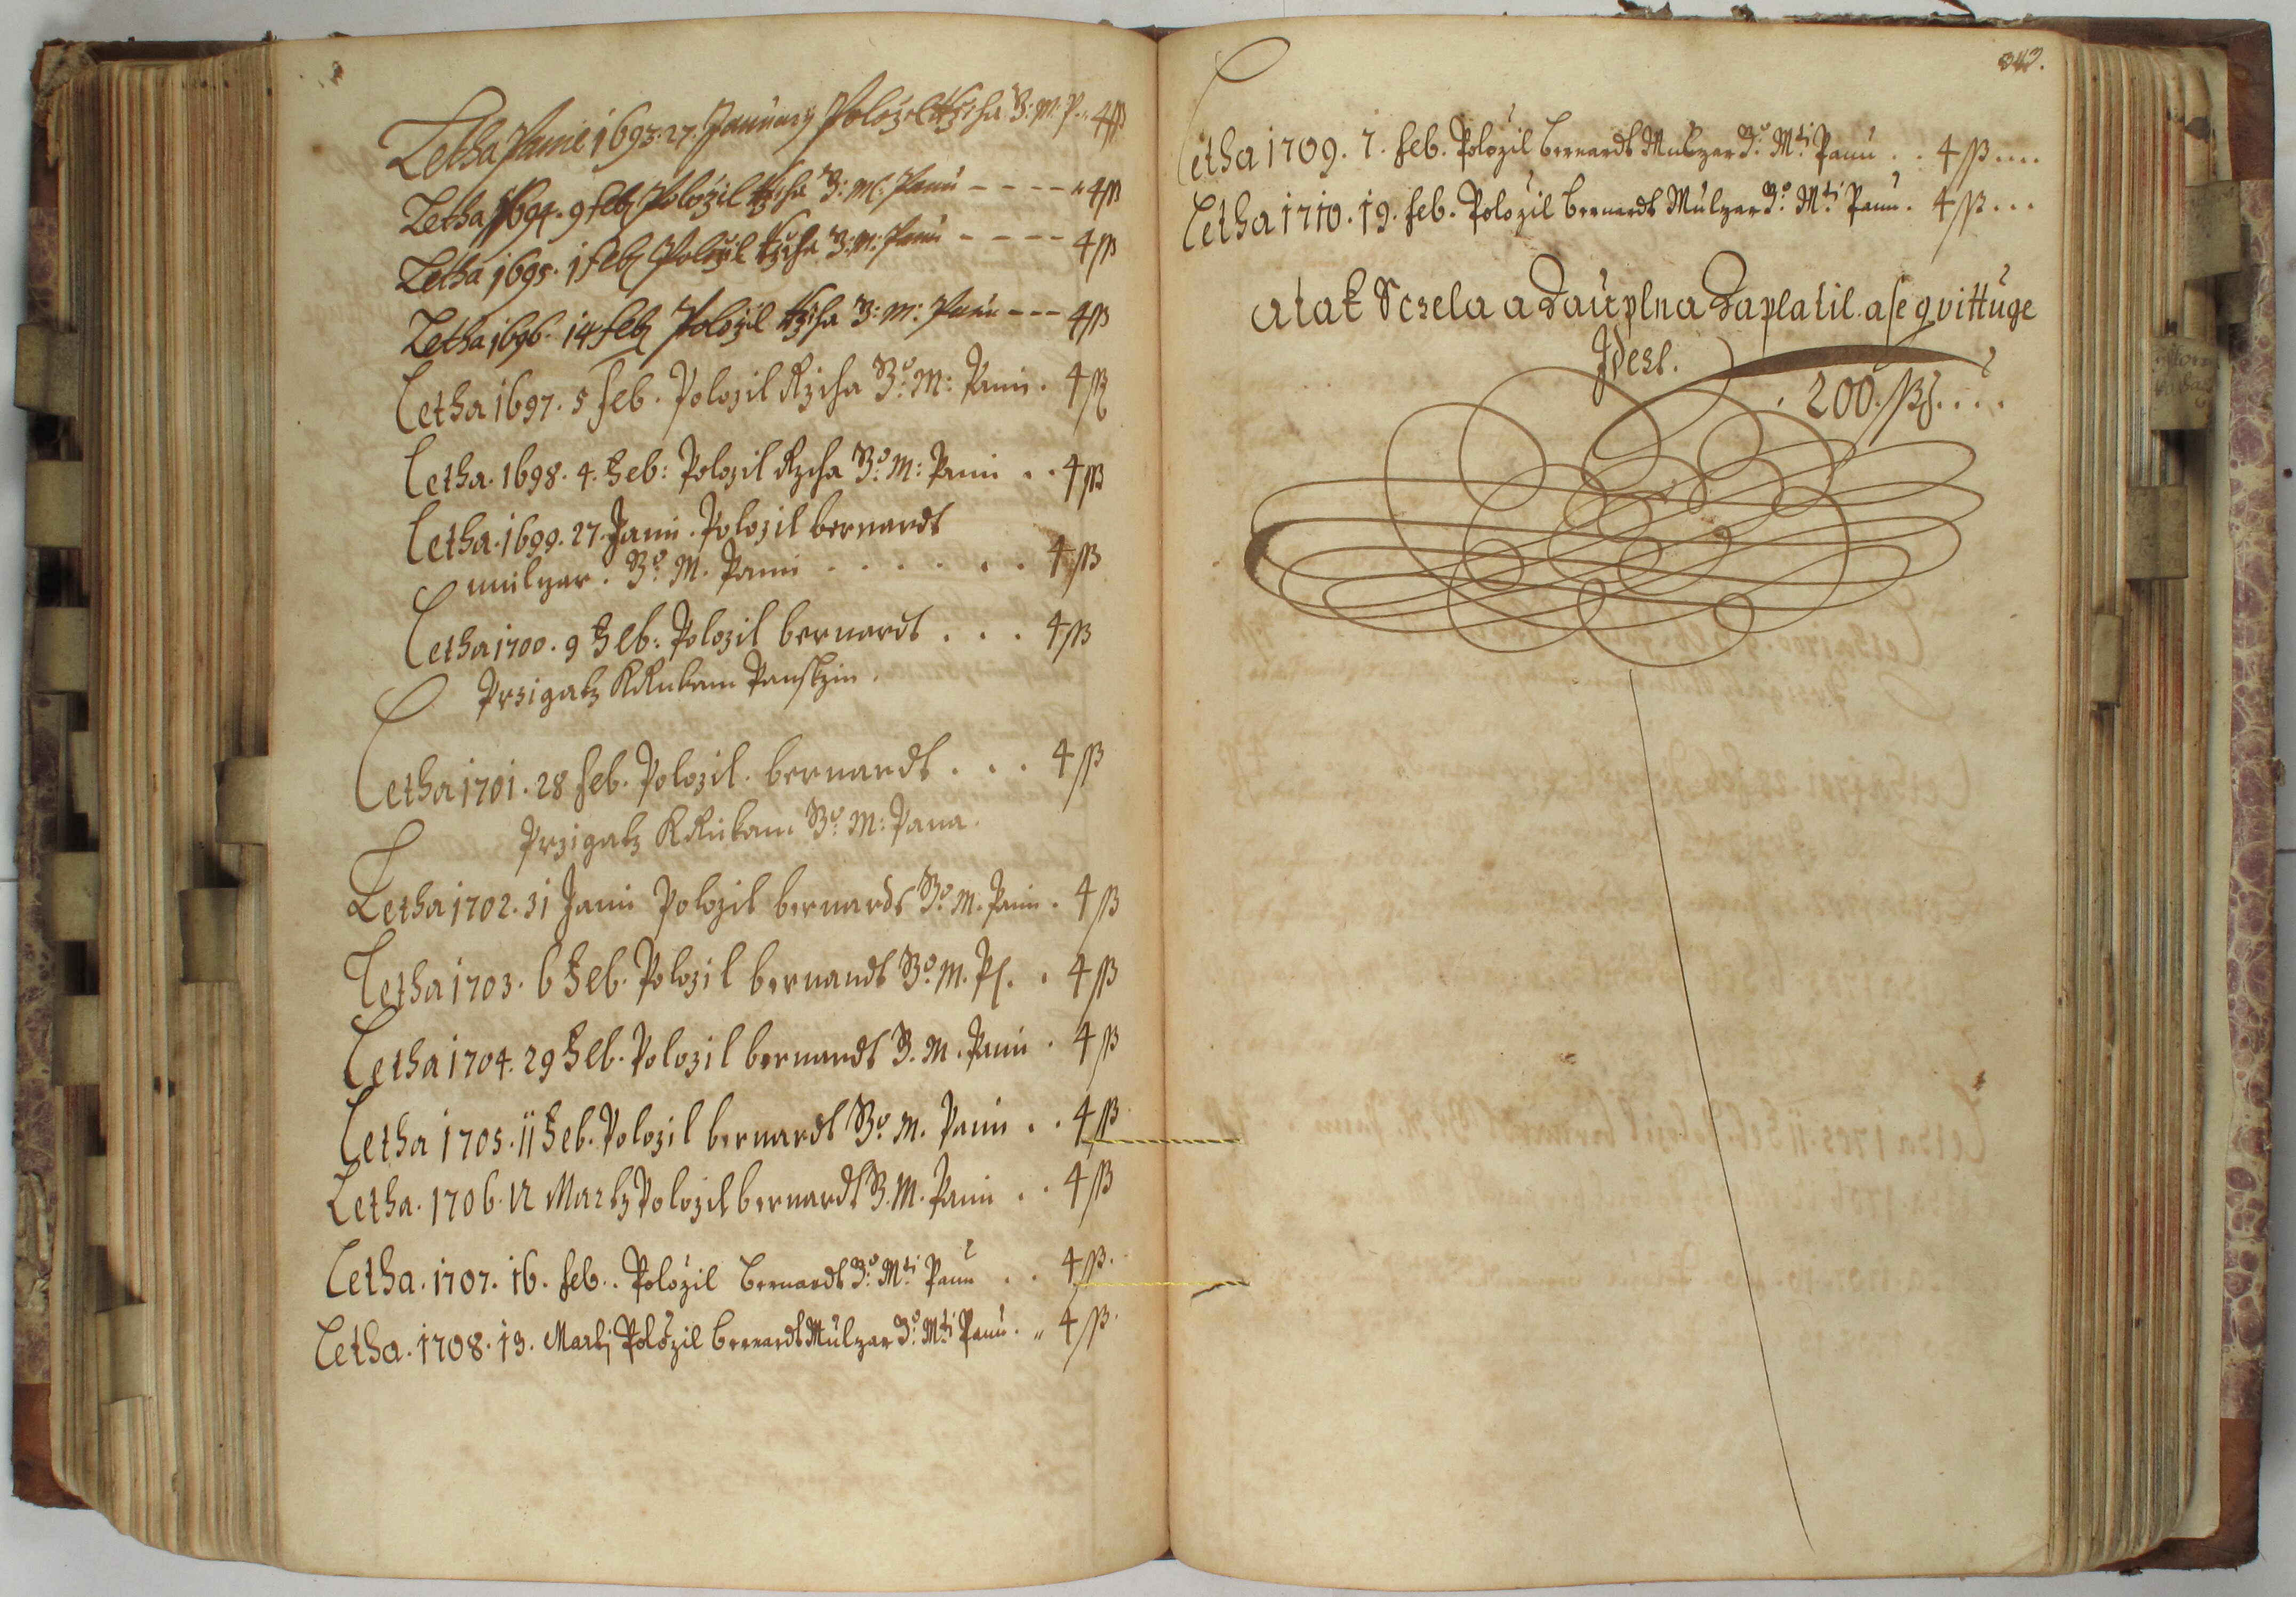 Letha Panie 1693. 27. January Položil Rzicha J: M: P. 4 ß
Letha 1694. 9 feb Položil Rzicha J: M: Panu - - - - 4 ß
Letha 1695. 1 feb Položil Rzicha J: M: Panu - - - - 4 ß
Letha 1696. 14 feb Položil Rzicha J: M: Panu - - - 4 ß
Letha 1697. 5 feb. Polozil Rzicha Jº: M: Panu . 4 ß
Letha. 1698. 4. Feb: Polozil Rzicha Jº: M: Panu . . 4 ß
Letha. 1699. 27. Janu. Polozil bernardt
mulzar. Jº: M. Panu . . . . . . 4 ß
Letha 1700. 9 Feb: Polozil bernardt . . . 4 ß
Przigatz KRukam Panskzm.
Letha 1701. 28 feb. Polozil. bernardt . . . 4 ß
Przigatz KRukam Jº: M: Pana.
Letha 1702. 31 Janu Polozil bernardt Jº. M. Panu . 4 ß
Letha 1703. 6 Feb. Polozil bernandt Jº. M. P. . 4 ß
Letha 1704. 29 Feb. Polozil bernardt J. M. Panu . 4 ß
Letha 1705. 11 Feb. Polozil bernardt Jº. M. Panu . . 4 ß
Letha. 1706. 12 Martz Polozil bernardt J. M. Panu . . 4 ß
Letha. 1707. 16. feb. . Položil Bernardt Jº: Mti Panu . . 4 ß.
Letha. 1708. 13. Martj Položil Bernardt Mulzar Jº: Mti Panu. 4 ß.
343.
Letha 1709. 7. feb. Položil Bernardt Mulzar Jº: Mti Panu . . 4 ß....
Letha 1710. 19. feb. Položil Bernardt Mulzar Jº: Mti Panu. 4 ß...
A tak Sczela a Zauplna Zaplatil. a se qvittuge
Idest.
. 200. ß ....